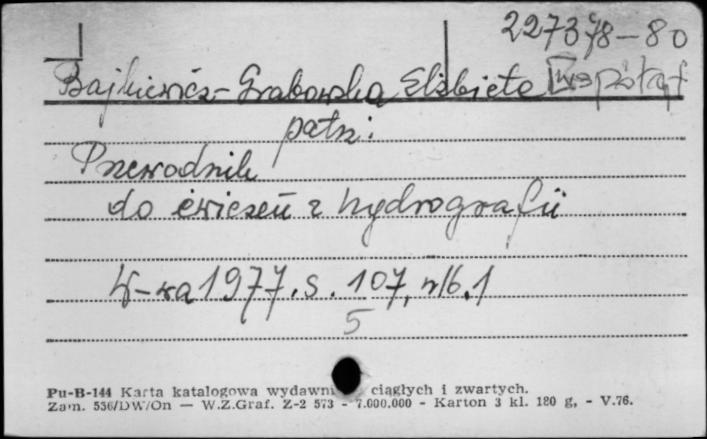 227378-80
Bajkiewicz-Grabowska Elżbieta [współaut
patrz:
Przewodnik
do ćwiczeń z hydrografii
W-wa 1977, s. 107, nlb. 1
5
Pu-B-144 Karta katalogowa wydawni ciągłych i zwartych.
Zam. 536/DW/On — W.Z.Graf. Z-2 573 - 7.000.000 - Karton 3 kl. 180 g, - V.76.